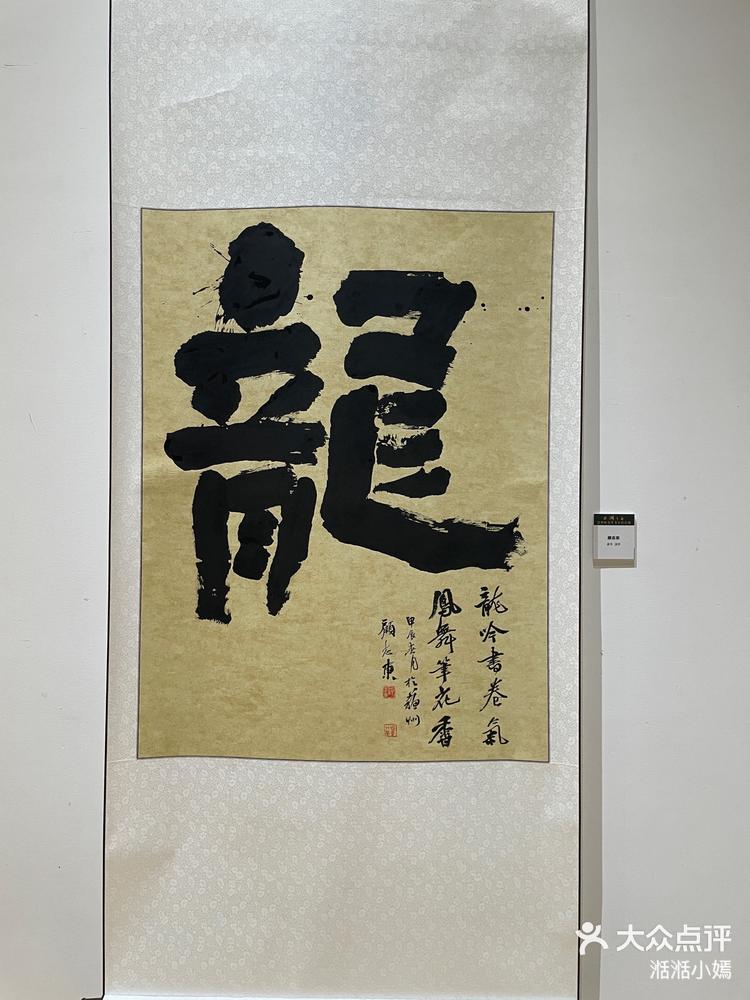 龍
龍吟書卷氣
鳳舞筆花香
甲辰春月於蘇州
顧志東
大众点评
湉湉小嫣